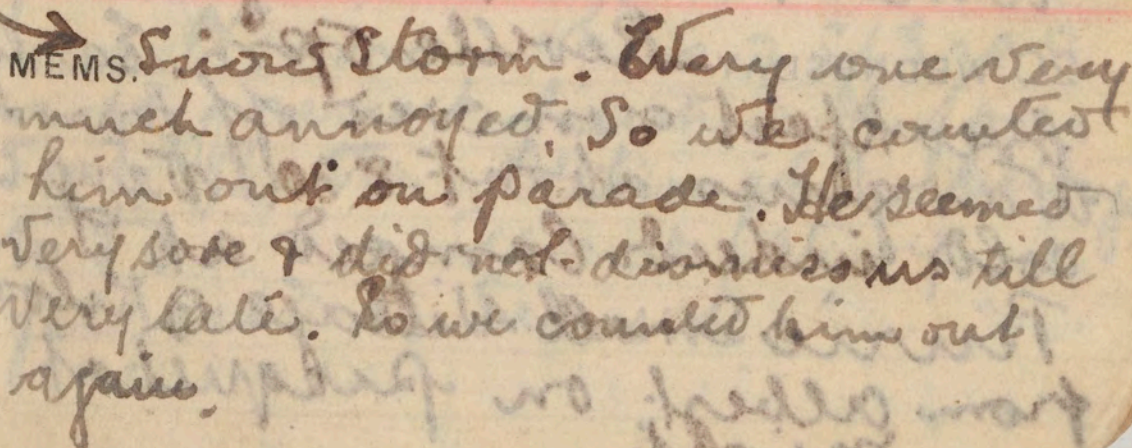 MEMS. Snow Storm. Every one very
much annoyed. So we counted
him out on parade. He seemed
very sore & did not dismiss us till
very late. So we counted him out
again.